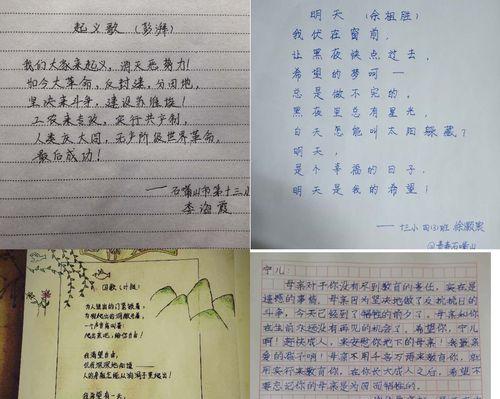 起义歌 (彭湃)
我们大家来起义，消灭恶势力！
如今大革命，反封建，分田地，
坚决来斗争，建设苏维埃！
工农来专政，实行共产制，
人类庆大同，无产阶级世界革命，
最后成功！
——石嘴山市第十三小
李海霞
明天 (余祖胜)
我伏在窗前，
让黑夜快点过去，
希望的梦呵——
总是做不完的，
黑夜里总有星光，
白天怎能叫太阳躲藏？
明天，
是个幸福的日子，
明天是我的希望！
——十三小四(3)班 徐灏宸
@青春石嘴山
囚歌 (叶挺)
为人进出的门紧锁着，
为狗爬出的洞敞开着，
一个声音高叫着：
爬出来吧，给你自由！
我渴望自由，
但我深深地知道——
人的身躯怎能从狗洞子里爬出！
我希望有一天，
宁儿：
母亲对于你没有尽到教育的责任，实在是
遗憾的事情。母亲因为坚决地做了反抗日的
斗争，今天已经到了牺牲的前夕了。母亲和你
在生前永远没有再见的机会了。希望你，宁儿
啊！赶快成人，来安慰你地下的母亲！我最亲
爱的孩子啊！母亲不用千言万语来教育你，就
用实行来教育你。在你长大成人之后，希望不
要忘记你的母亲是为国而牺牲的。